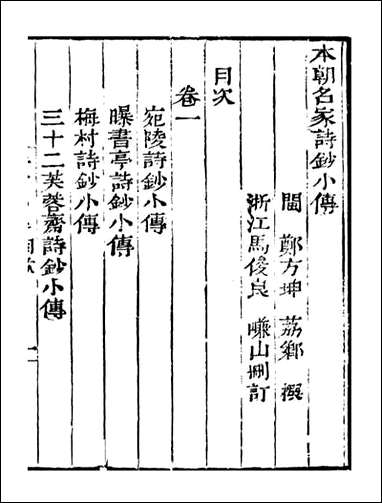 本朝名家詩鈔小傳
閩 鄭方坤 荔鄉 撰
浙江馬俊良 嵰山刪訂
目次
卷一
宛陵詩鈔小傳
曝書亭詩鈔小傳
梅村詩鈔小傳
三十二芙蓉齋詩鈔小傳